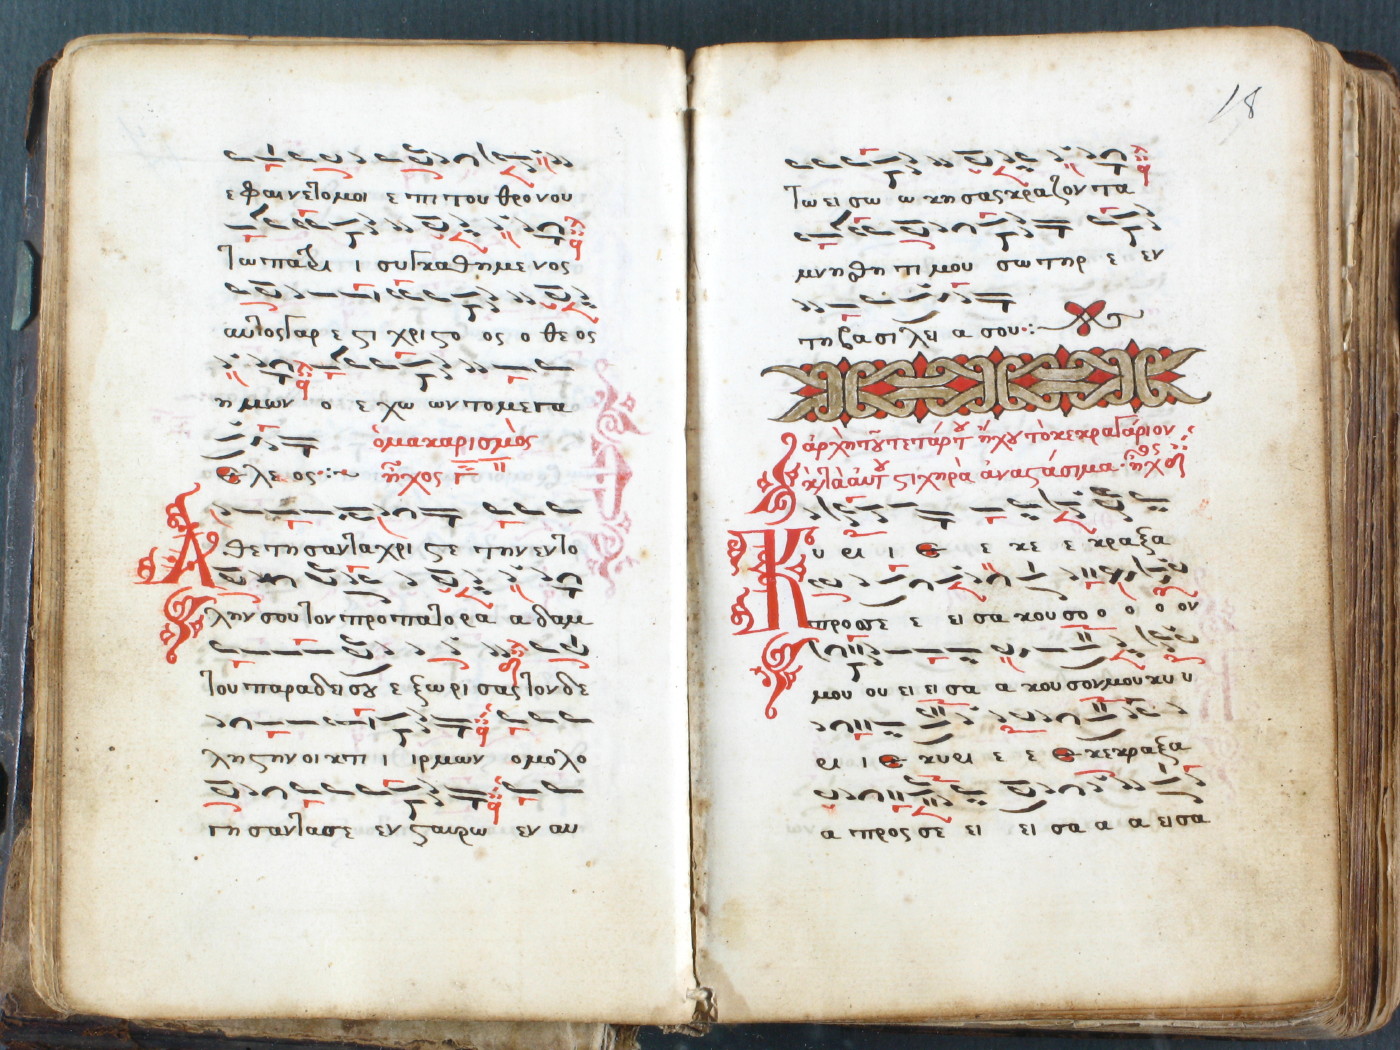 ε φαι νε το μοι ε πι του θρο νου
τω πα τρι ι συγ κα θη με νος
αυ τος γαρ ε στι χρι στο ος ο θε ος
η μων ο ε χω ων το με γα
ε λε ος ὁ μακαρισμὸς
ἦχος γ
Α θε τη σαν τα χρι στε την εν το
λην σου τον προ πα το ρα α δαμ
του πα ρα δει σου ε ξω ρι σας τον δε
λη στην οι κτι ι ιρ μων ο μο λο
γη σαν τα σε εν σταυ ρω εν αυ
18
τω ει σω ω κη σας κρα ζον τα
μνη θη τι μου σω τηρ ε εν
τη βα σι λει α σου
ἀρχὴ τοῦ τετάρτου ἤχου τὸ κεκραγάριον
στιχηρὰ ἀναστάσιμα ἦχος δ
Κ υ ρι ι ε ε κε ε κρα ξα
προς σε ε ει σα κου σο ο ο ο ον
μου ου ει ει σα α κου σον μου κυ υ
ρι ι ε κυ ρι ε ε ε κε κρα ξα
α προς σε ει ει σα α α ει σα